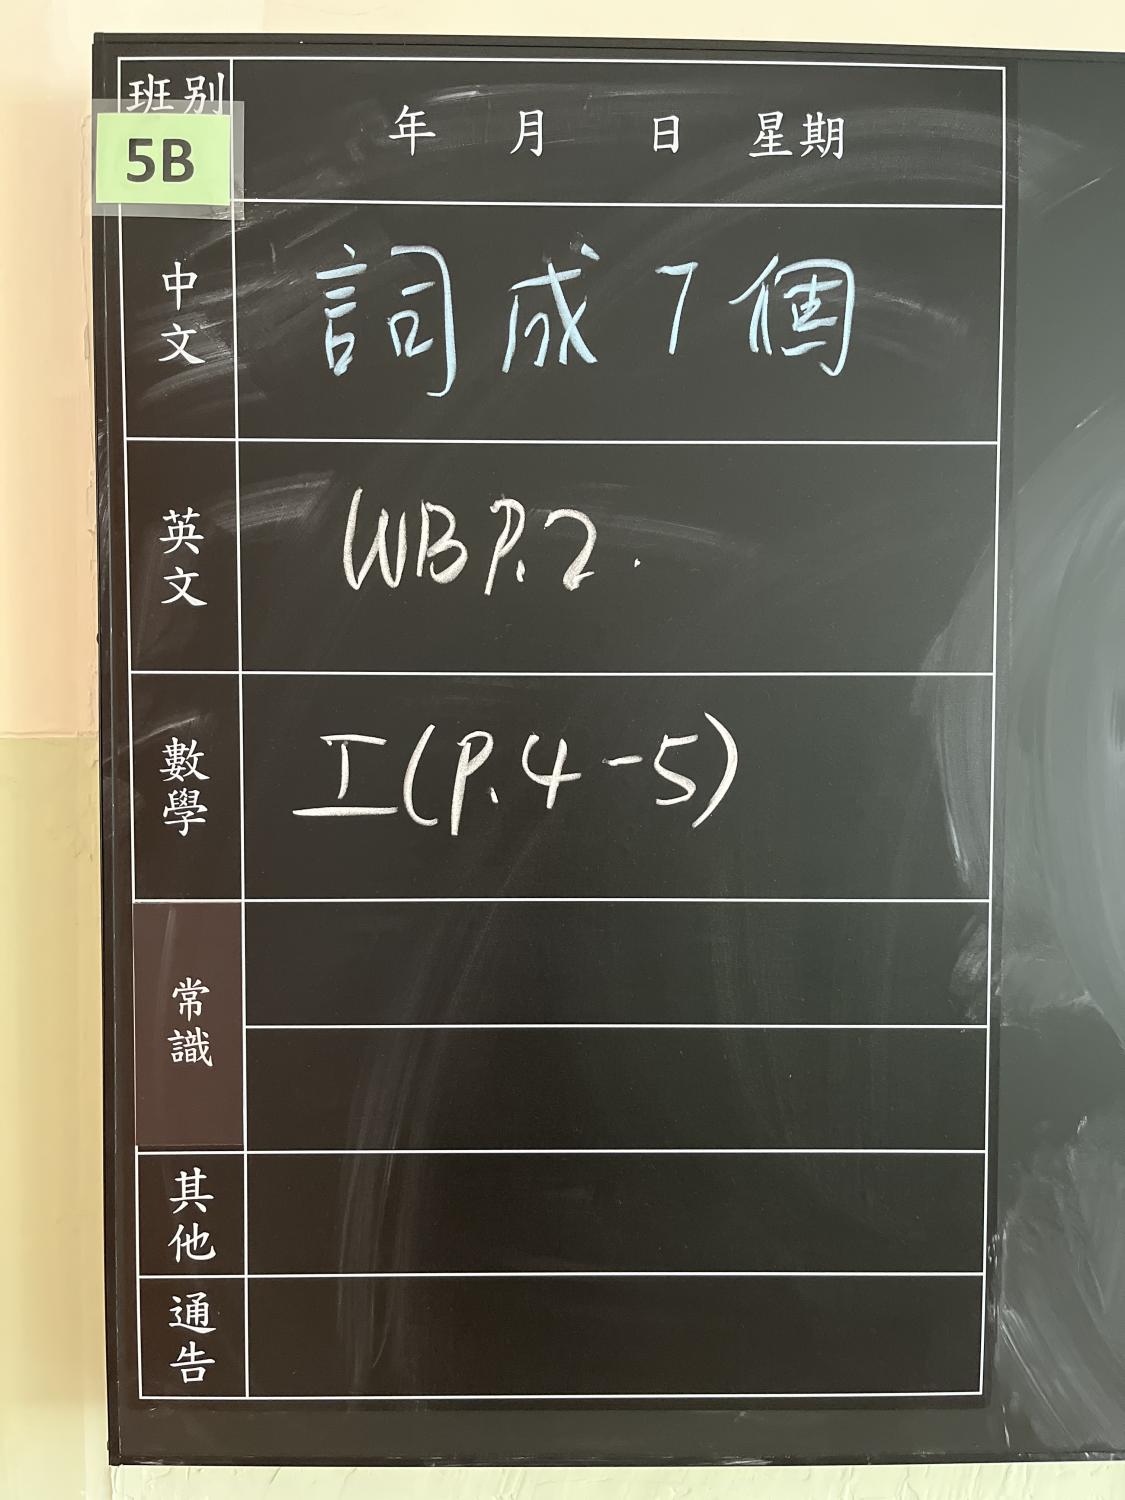 班別
5B
年 月 日 星期
中文
詞成7個
英文
WB P.2.
數學
工(P.4-5)
常識
其他
通告